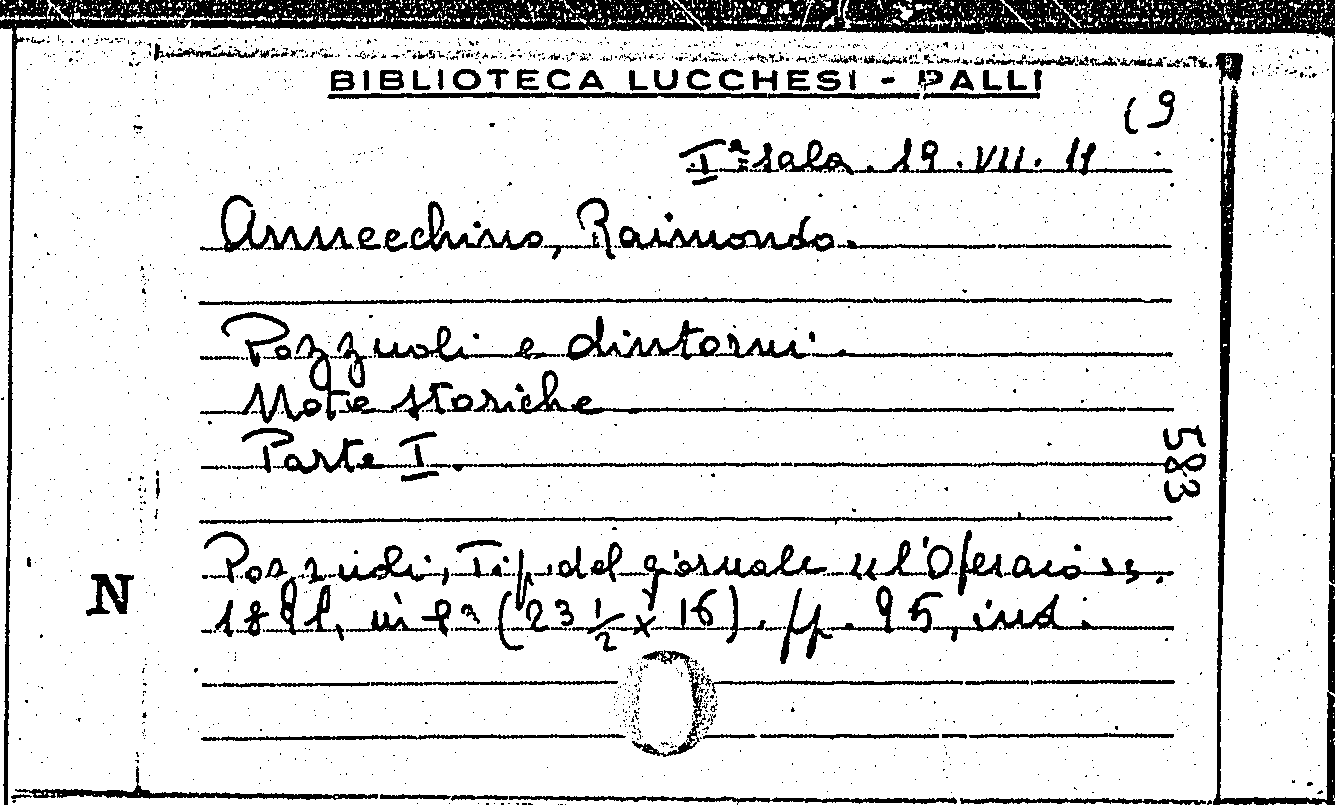 BIBLIOTECA LUCCHESI - PALLI
(9
Iª sala. 19. VII. 11
Annecchino, Raimondo.
Pozzuoli e dintorni.
Note storiche
Parte I.
583
Pozzuoli, Tip. del giornale "l'Operaio".
1891, in 8° (23 1/2 x 16). pp. 95, ind.
N